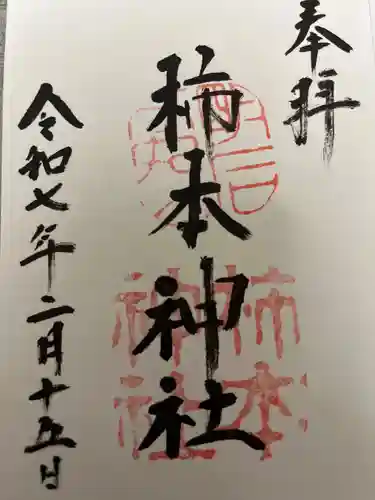 奉拝
柿本神社
明石
柿本
神社
令和七年二月十五日